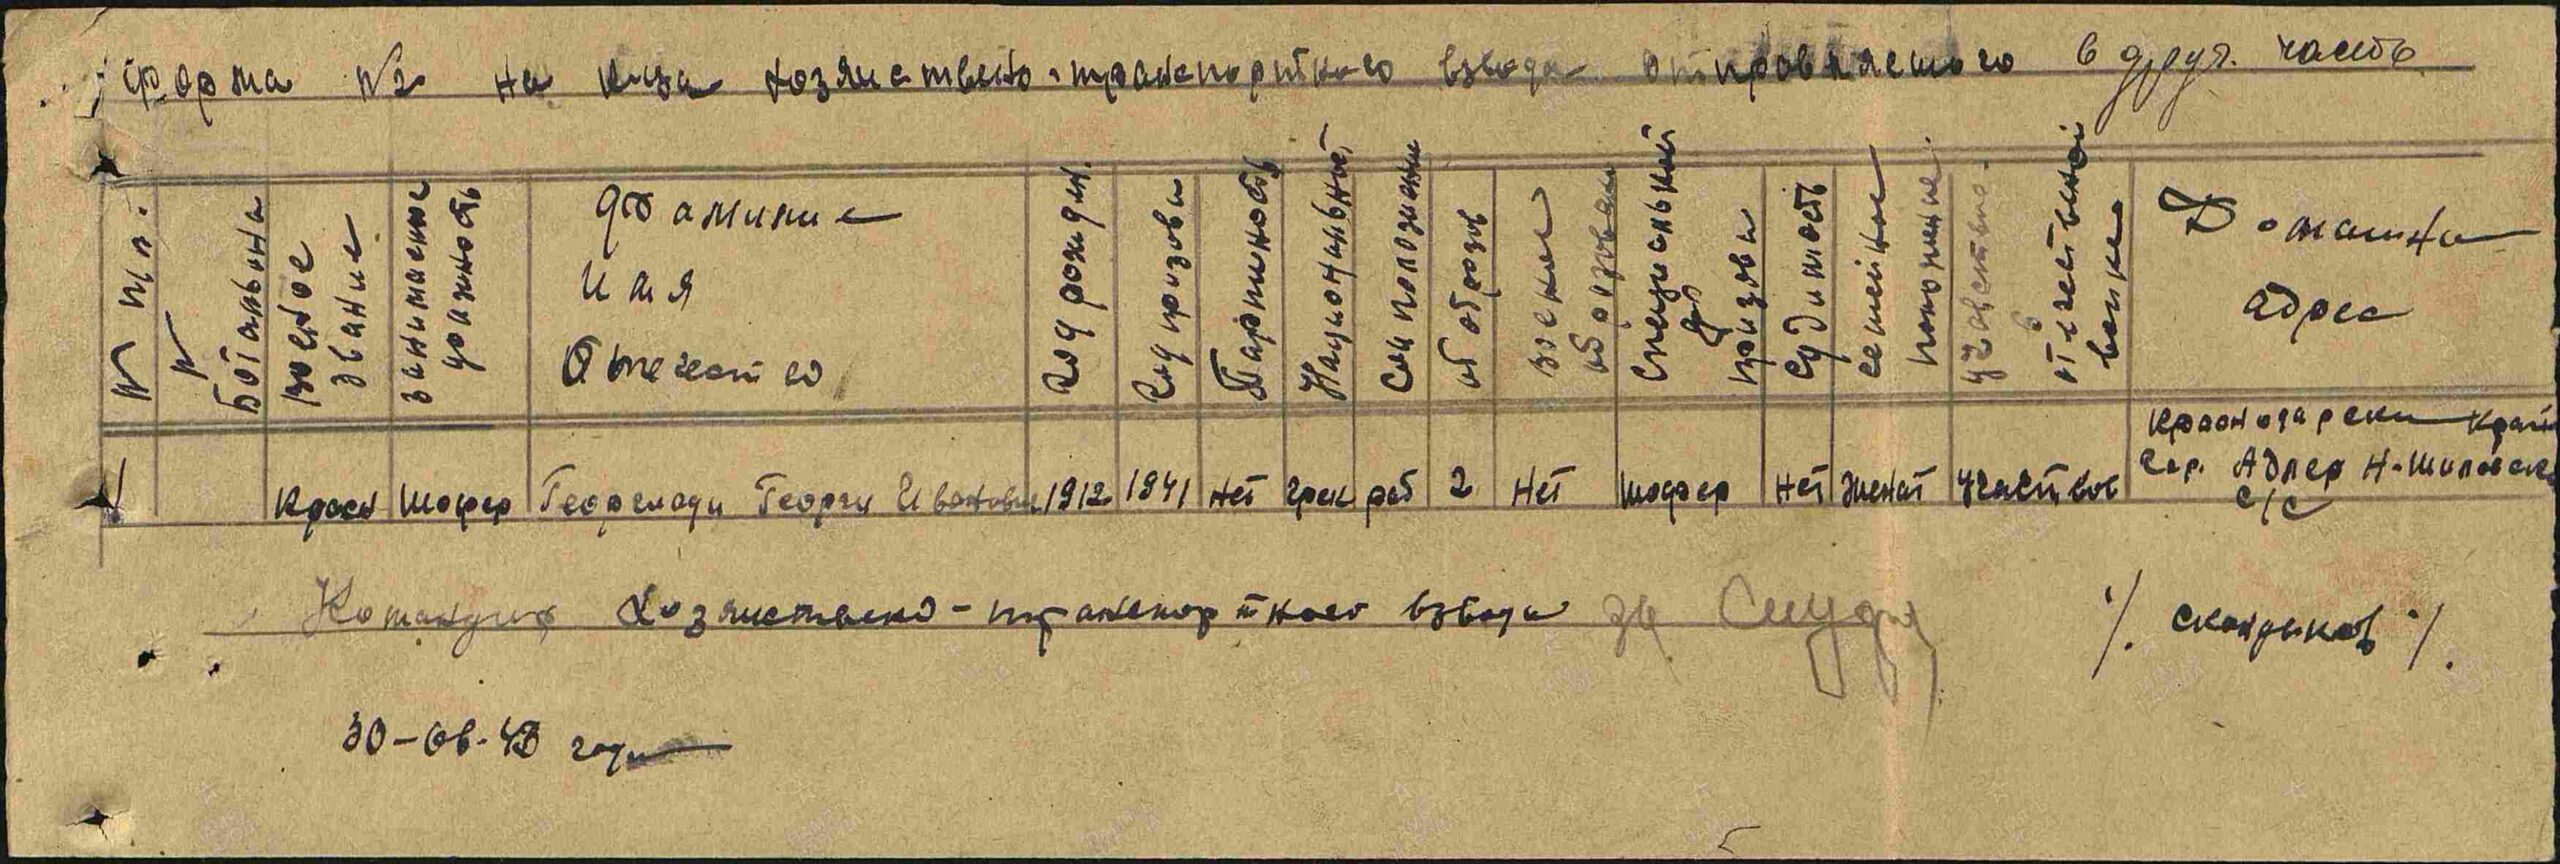 Форма №2 на лиза хозяиствено-транспорткого взвода отпровляемого в друг. часть
№ п.п.
№Ботальона
военое звание
занимаемое должность
Фамилие Имя Отечество
год рожден.
год призова
Партииность
Национальност
Соц положени
об образов
военое оброзован
Специсльной до призова
Судимость
семейное положение
участво- в отечественой воине
Домашни адрес
1 Красн Шофер Георги Ивонович 1912 1941 Нет грек раб 2 Нет шофер Нет женат участвов Краснодарски Край гор. Адлер Н-Шиловски с/с
Командир Хозяиствено-транспорткого взвода
30-06-43 года